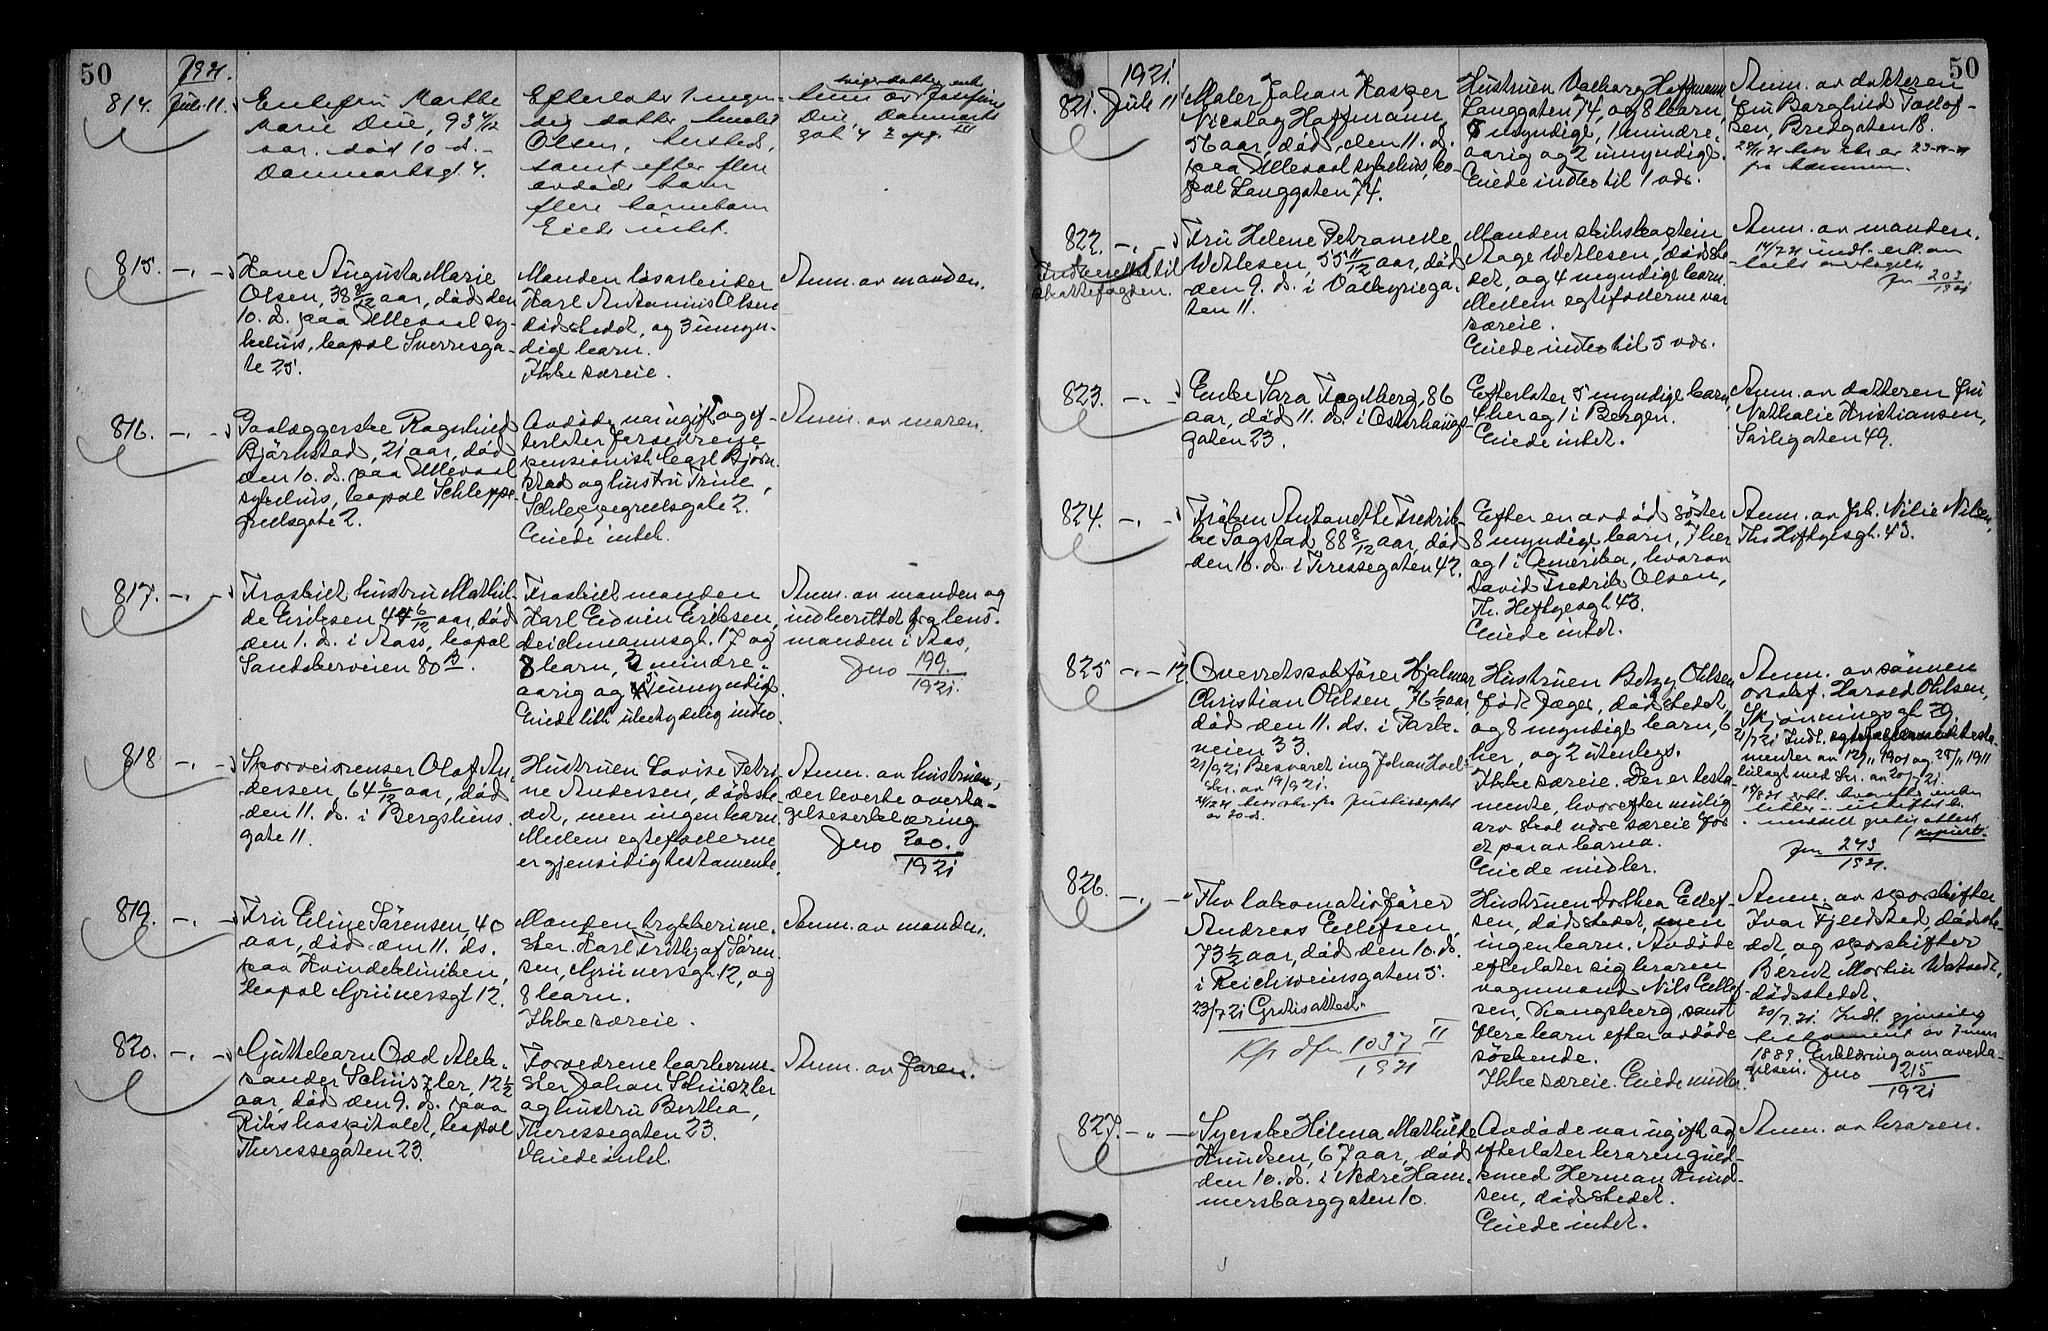 50
1921.
814. Juli 11.
Enkefru Marthe
Marie Due, 93 4/12
aar, død 10 d.
Danmarksgt. 4.
Efterlater 1 myn-
dig datter
Olsen,
samt efter flere
avdøde barn
flere barnebarn
Eiede intet.
Anm. av Josefine
Due, Danmarks
gat. 4 2 opg. III
815. -"-
Kone Augusta Marie
Olsen, 38 8/12 aar, død den
10. d. paa Ullevaal sy-
kehus, bopæl Sverresga-
te 25.
Manden løsarbeider
Karl Antonius Olsen
dødsstedet, og 3 umyn-
dige barn.
Ikke særeie.
Anm. av manden.
816. -"-
Paalæggerske Ragnhild
Bjørnstad, 21 aar, død
den 10. d. paa Ullevaal
sykehus, bopæl Schleppe-
grellsgate 2.
Avdøde var ugift og ef-
terlater forældrene
pensionist Carl Bjørn-
stad og hustru Trine,
Schleppegrellsgate 2.
Eiede intet.
Anm. av moren.
817. -"-
Fraskilt hustru Mathil-
de Eriksen 44 6/12 aar, død
den 1. d. i Aas, bopæl
Sandakerveien 80 B.
Fraskilt manden
Karl Edvin Eriksen,
Deichmannsgt. 17 og
8 barn, 3 mindre-
aarig og 5 umyndige.
Eiede litt ubetydelig indbo
Anm. av manden og
indberettet fra lens-
manden i Aas,
Jno 199.
1921.
818 -"-
Sporveisrenser Olaf An-
dersen, 64 6/12 aar, død
den 11. ds. i Bergsliens
gate 11.
Hustruen Lovise Petri-
ne Andersen, dødsste-
det, men ingen barn.
Mellem egtefællerne
er gjensidig testamente.
Anm. av hustruen,
der leverte overta-
gelseserklæring
Jno 200.
1921
819. -"-
Fru Elise Sørensen, 40
aar, død den 11. ds.
paa Kvindeklinikken,
bopæl Grünersgt. 12.
Manden trykkerime-
ster Karl Fritjof Søren-
sen, Grünersgt. 12, og
8 barn.
Ikke særeie.
Anm. av manden.
820. -"-
Guttebarn Odd Alek-
sander Schüszler, 12 1/2
aar, død den 9. d. paa
Rikshospitalet, bopæl
Theressegaten 23.
Forældrene
Johan Schüszler
og hustru Bertha,
Theressegaten 23.
Eiede intet.
Anm. av faren.
50
1921
821. Juli 11
Maler Johan Kasper
Nicolay Hoffmann,
56 aar, død den 11. d.
paa Ullevaal sykehus, bo-
pæl Langgaten 74.
Hustruen Valborg Hoffmann
Langgaten 74, og 8 barn,
5 myndige, 1 mindre-
aarig og 2 umyndige.
Eiede indbo til 1 vær.
Anm. av datteren
fru Borghild Tollof-
sen, Bredgaten 18.
822. -"-
Indberettet til
skattefogden.
Fru Helene Petronelle
Wetlesen, 55 11/12 aar, død
den 9. d. i Valkyriega-
ten 11.
Manden skibskaptein
Aage Wetlesen, dødsste-
det, og 4 myndige barn.
Mellem egtefællerne var
særeie.
Eiede indbo til 5 vær.
Anm. av manden.
14/7 21 indl. erkl. om
boets overtagelse
Jno 203
1921
823. -"-
Enke Sara Fagelberg, 86
aar, død 11. ds. i Osterhaugs-
gaten 23.
Efterlater 5 myndige barn,
4 her og 1 i Bergen.
Eiede intet.
Anm. av datteren fru
Nathalie Kristiansen,
Sarsgaten 49.
824. -"-
Frøken Antonette Fredrik-
ke Sogstad, 88 8/12 aar, død
den 10. d. i Teressegaten 42.
Efter en avdød søster
8 myndige barn, 7 her
og 1 i Amerika, hvorav
David Fredrik Olsen,
Th. Heftyesgt. 43.
Eiede intet.
Anm. av frk. Nilie Nilsen,
Ths Heftyesgt. 43.
825 -"- 12.
Overretssakfører Hjalmar
Christian Ohlsen, 76 1/2 aar,
død den 11. ds. i Park-
veien 33.
21/9 21 Besvaret ing. Johan Hoel
skr. av 19/9 21.
av 20. d.
Hustruen Betzy Ohlsen
født Jæger, dødsstedet,
og 8 myndige barn, 6
her, og 2 utenlegs.
Ikke særeie. Der er testa-
mente, hvorefter mulig
arv skal være særeie for
et par av barna.
Eiede midler.
Anm. av sønnen
Harald Ohlsen,
Skjønningsgt 29.
21/7 21 Indl. testa-
menter av 12/11 1901 og 25/11 1911
bilagt med skr. av 20/7 21.
meddelt gratis attest
(kopiert).
Jno 243
1921.
826. -"-
Fhv lokomotivfører
Andreas Ellefsen,
73 1/2 aar, død den 10. d.
i Reichweinsgaten 5.
23/7 21 Gratisattest
1037 II
1921
Hustruen Dorthea Ellef-
sen, dødsstedet, men
ingen barn. Avdøde
efterlater sig broren
vognmand Nils Ellef-
sen, Kongsberg, samt
flere barn efter avdøde
søskende.
Ikke særeie. Eiede midler.
Anm. av sporskifter
Ivar Fjeldstad, dødsste-
det, og sporskifter
Bernt Martin Watvedt,
dødsstedet.
20/7 21. Indl. gjensidig
testament av 7 juni
1889. Erklæring om overta-
gelsen. Jno 215
1921
827. -"-
Syerske Hilma Mathilde
Knudsen, 67 aar, død
den 10. d. i Nedre Ham-
mersborggaten 10.
Avdøde var ugift og
efterlater broren guld-
smed Herman Knud-
sen, dødsstedet.
Eiede intet.
Anm. av broren.